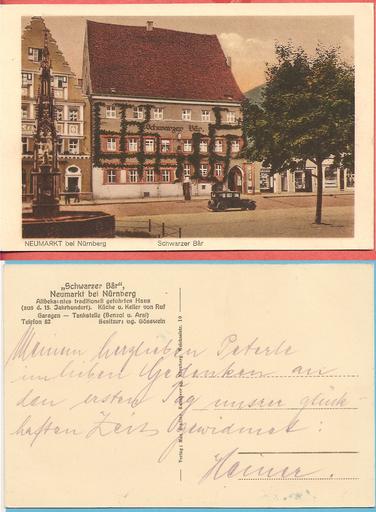 Schwarzer Bär.
NEUMARKT bei Nürnberg
Schwarzer Bär
„Schwarzer Bär“,
Neumarkt bei Nürnberg
Altbekanntes traditionell geführtes Haus
(aus d. 15. Jahrhundert). Küche u. Keller von Ruf
Garagen — Tankstelle (Benzol u. Aral)
Telefon 82
Besitzer: Gösswein
Meinem herzlieben Peterle
im lieben Gedenken an
den ersten Tag unsrer glück-
haften Zeit gewidmet:
Heiner.